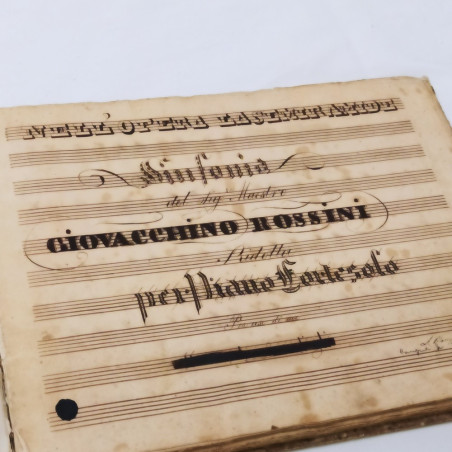 NELL' OPERA LA SEMIRAMIDE
Sinfonia
del Sig Maestro
GIOVACCHINO ROSSINI
Ridotta
per Piano Forte solo